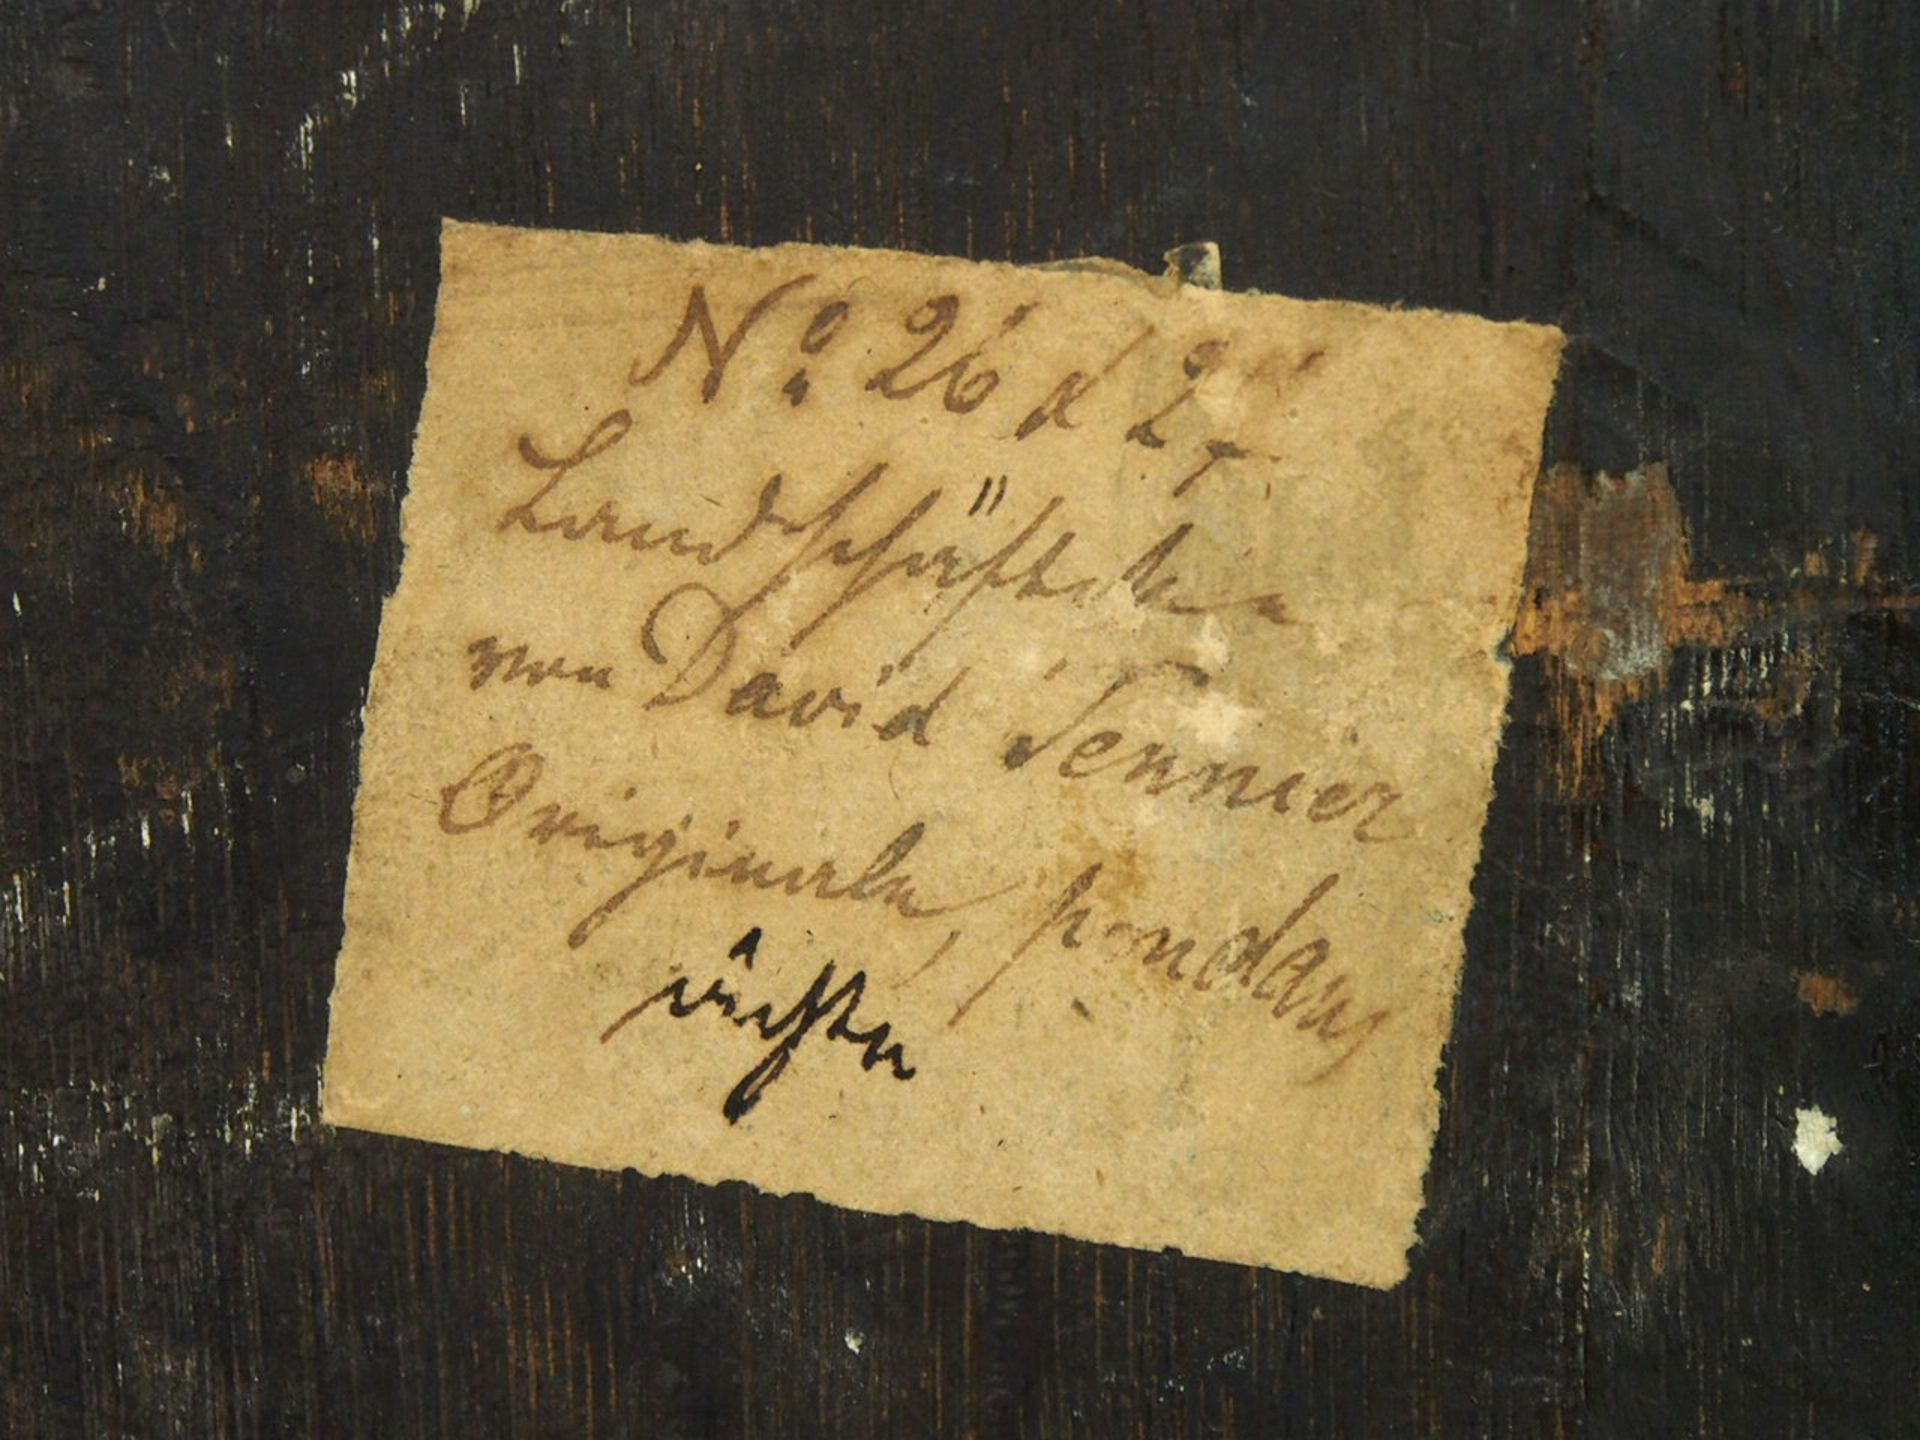 No. 26 & 27
Landschäftchen
von David Tennier
Originale, pendans